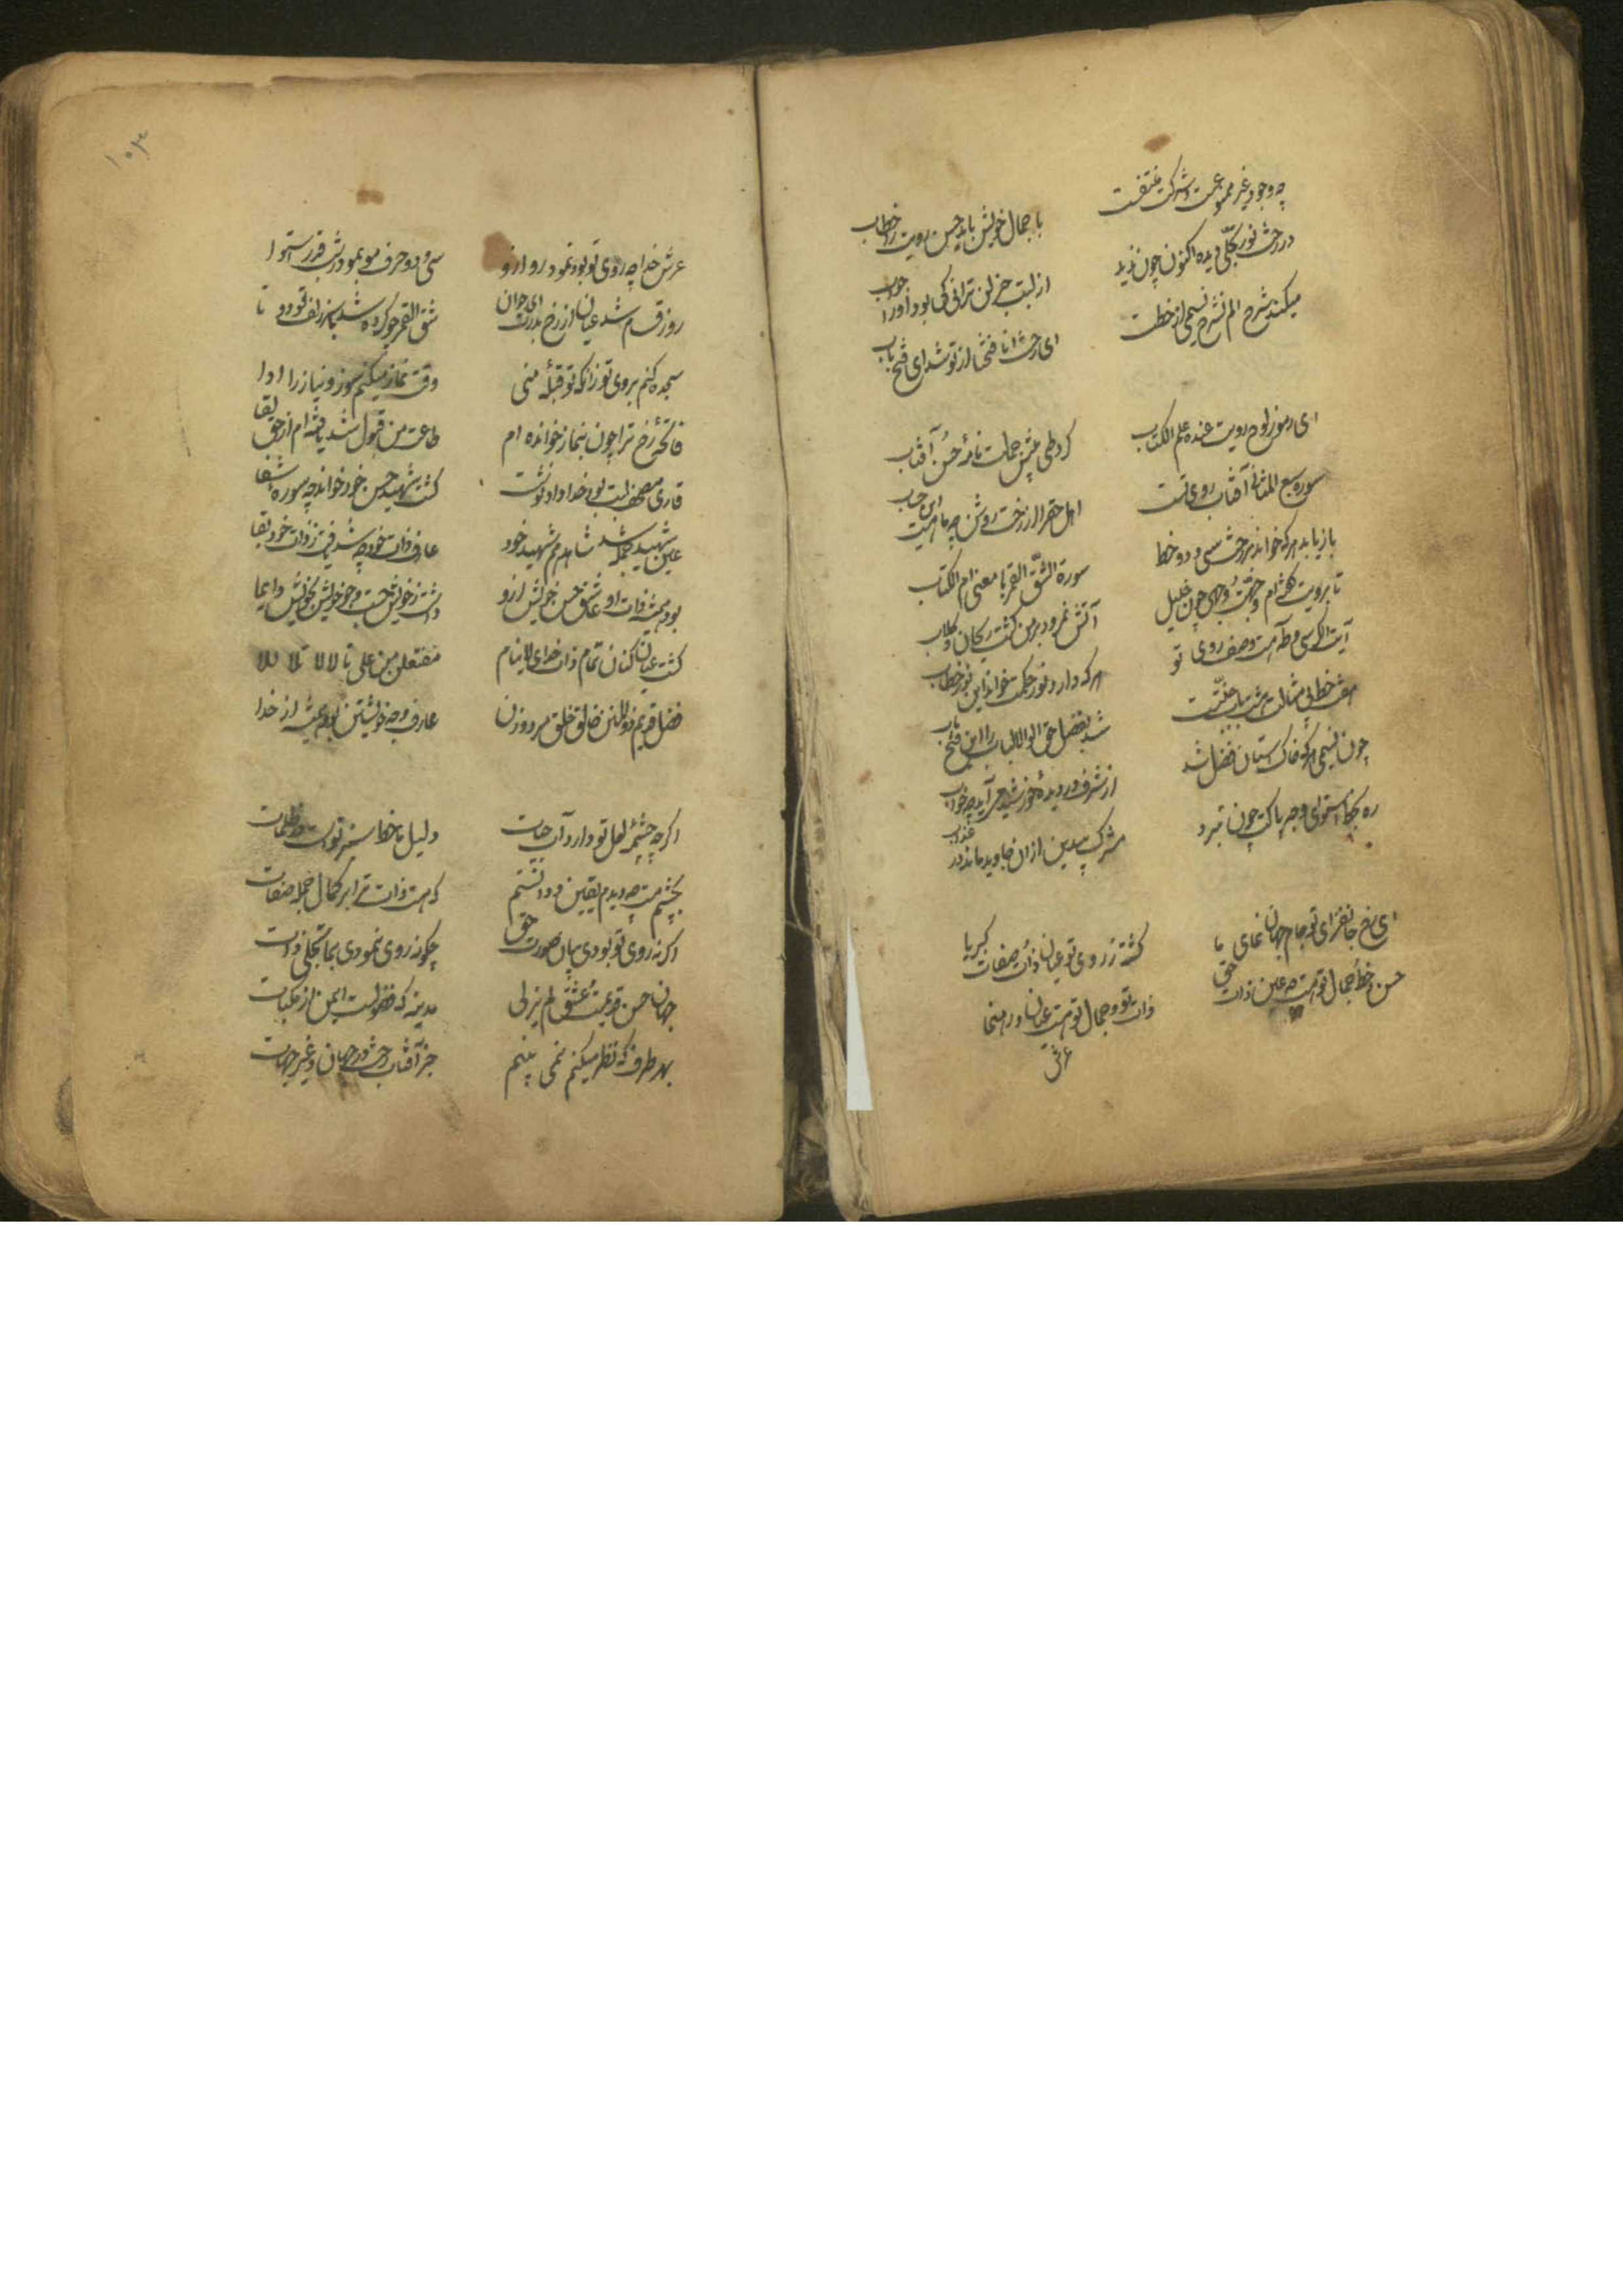 چه وجود غیر ممنوعست و شرکت منتفیست
با جمال خویش باید حسن رویت را خطاب
در رخت نور تجلی دیده اکنون چون ندید
از لبت جز لن ترانی کی بود او را جواب
میکند شرح الم نشرح نسیمی از خطت
ای رخت انا فتحنا از تو شد این فتح باب
ای رموز لوح رویت عنده علم الکتاب
کرد طی پیش جمالت نامهٔ حسن آفتاب
سوره سبع المثانی آفتاب روی تست
اهل حق را از رخت روشن چو ماهست این حساب
بازیابد هر که خواند از رخت سی و دو خط
سورة انشق القمر با معنی ام الکتاب
تا برویت گفته‌ام وجهت وجهی چون خلیل
آتش نمرود بر من گشت ریحان و گلاب
آیت الکرسی و طه هست وصف روی تو
هر که دارد نور حکمت خواند این نور خطاب
هفت خطت بی مثالت هشت باب جنت است
شد بفضل حق اولوالالباب را این فتح باب
چون نسیمی هر که خاک آستان فضل شد
از شرف در دیدهٔ خورشید می آید چو خواب
ره بجا استوای وجه پاکت چون نبرد
مشرک بیدین از آن جاوید ماند در عذاب
ای رخ جانفزای تو جام جهان نمای ما
گشته ز روی تو عیان ذات و صفات کبریا
حسن و خط و جمال تو هست چو عین ذات حق
ذات تو و جمال تو هست عیان و رهنما
عرش
۱۰۳
عرش خدا چه روی تو بود نمود رو ازو
سی و دو حرف موی بمو در شب قدر استوا
روز قیام شد عیان از رخ بدرت ای جوان
شق القمر چو کرده شد باز زلف تو دوتا
سجده کنم بروی تو زانکه تو قبلهٔ منی
وقت نماز میکنم سوز و نیاز را ادا
فاتحهٔ رخ ترا چون بنماز خوانده ام
طاعت من قبول شد یافته ام از حق لقا
قاری مصحف لبت بوی خدا داد نوشت
گشت شهید حسن خود خواند چو سوره شفا
عین شهید جمله شد شاهد هم شهید خود
عارف ذات خود چو شد یافت ز ذات خود بقا
بود همیشه ذات او عاشق حسن خویش ازو
داشت ز خویش جست و جو خویش بخویش دایما
گشت عیان کنان تمام ذات خدای لاینام
مفتعلن من علی تا لالا تلا للا
فضل قدیم ذوالمنن خالق خلق مرد و زن
عارف وجه خویشتن بود همیشه از خدا
اگر چه چشمهٔ لعل تو دارد آب حیات
دلیل ما خط سبز تو است در ظلمات
بچشم مست چو دیدم یقین و دانستم
که هست ذات ترا بر کمال جمله صفات
اگر نه روی تو بودی بیان صورت حق
چگونه روی نمودی بما تجلی ذات
جهان حسن قدیمت و عشق لم یزلی
مدینه که فضولیست ایمن از نکبات
بهر طرف که نظر میکنم نمی بینم
جز آفتاب رخت در جهان و غیر جهات